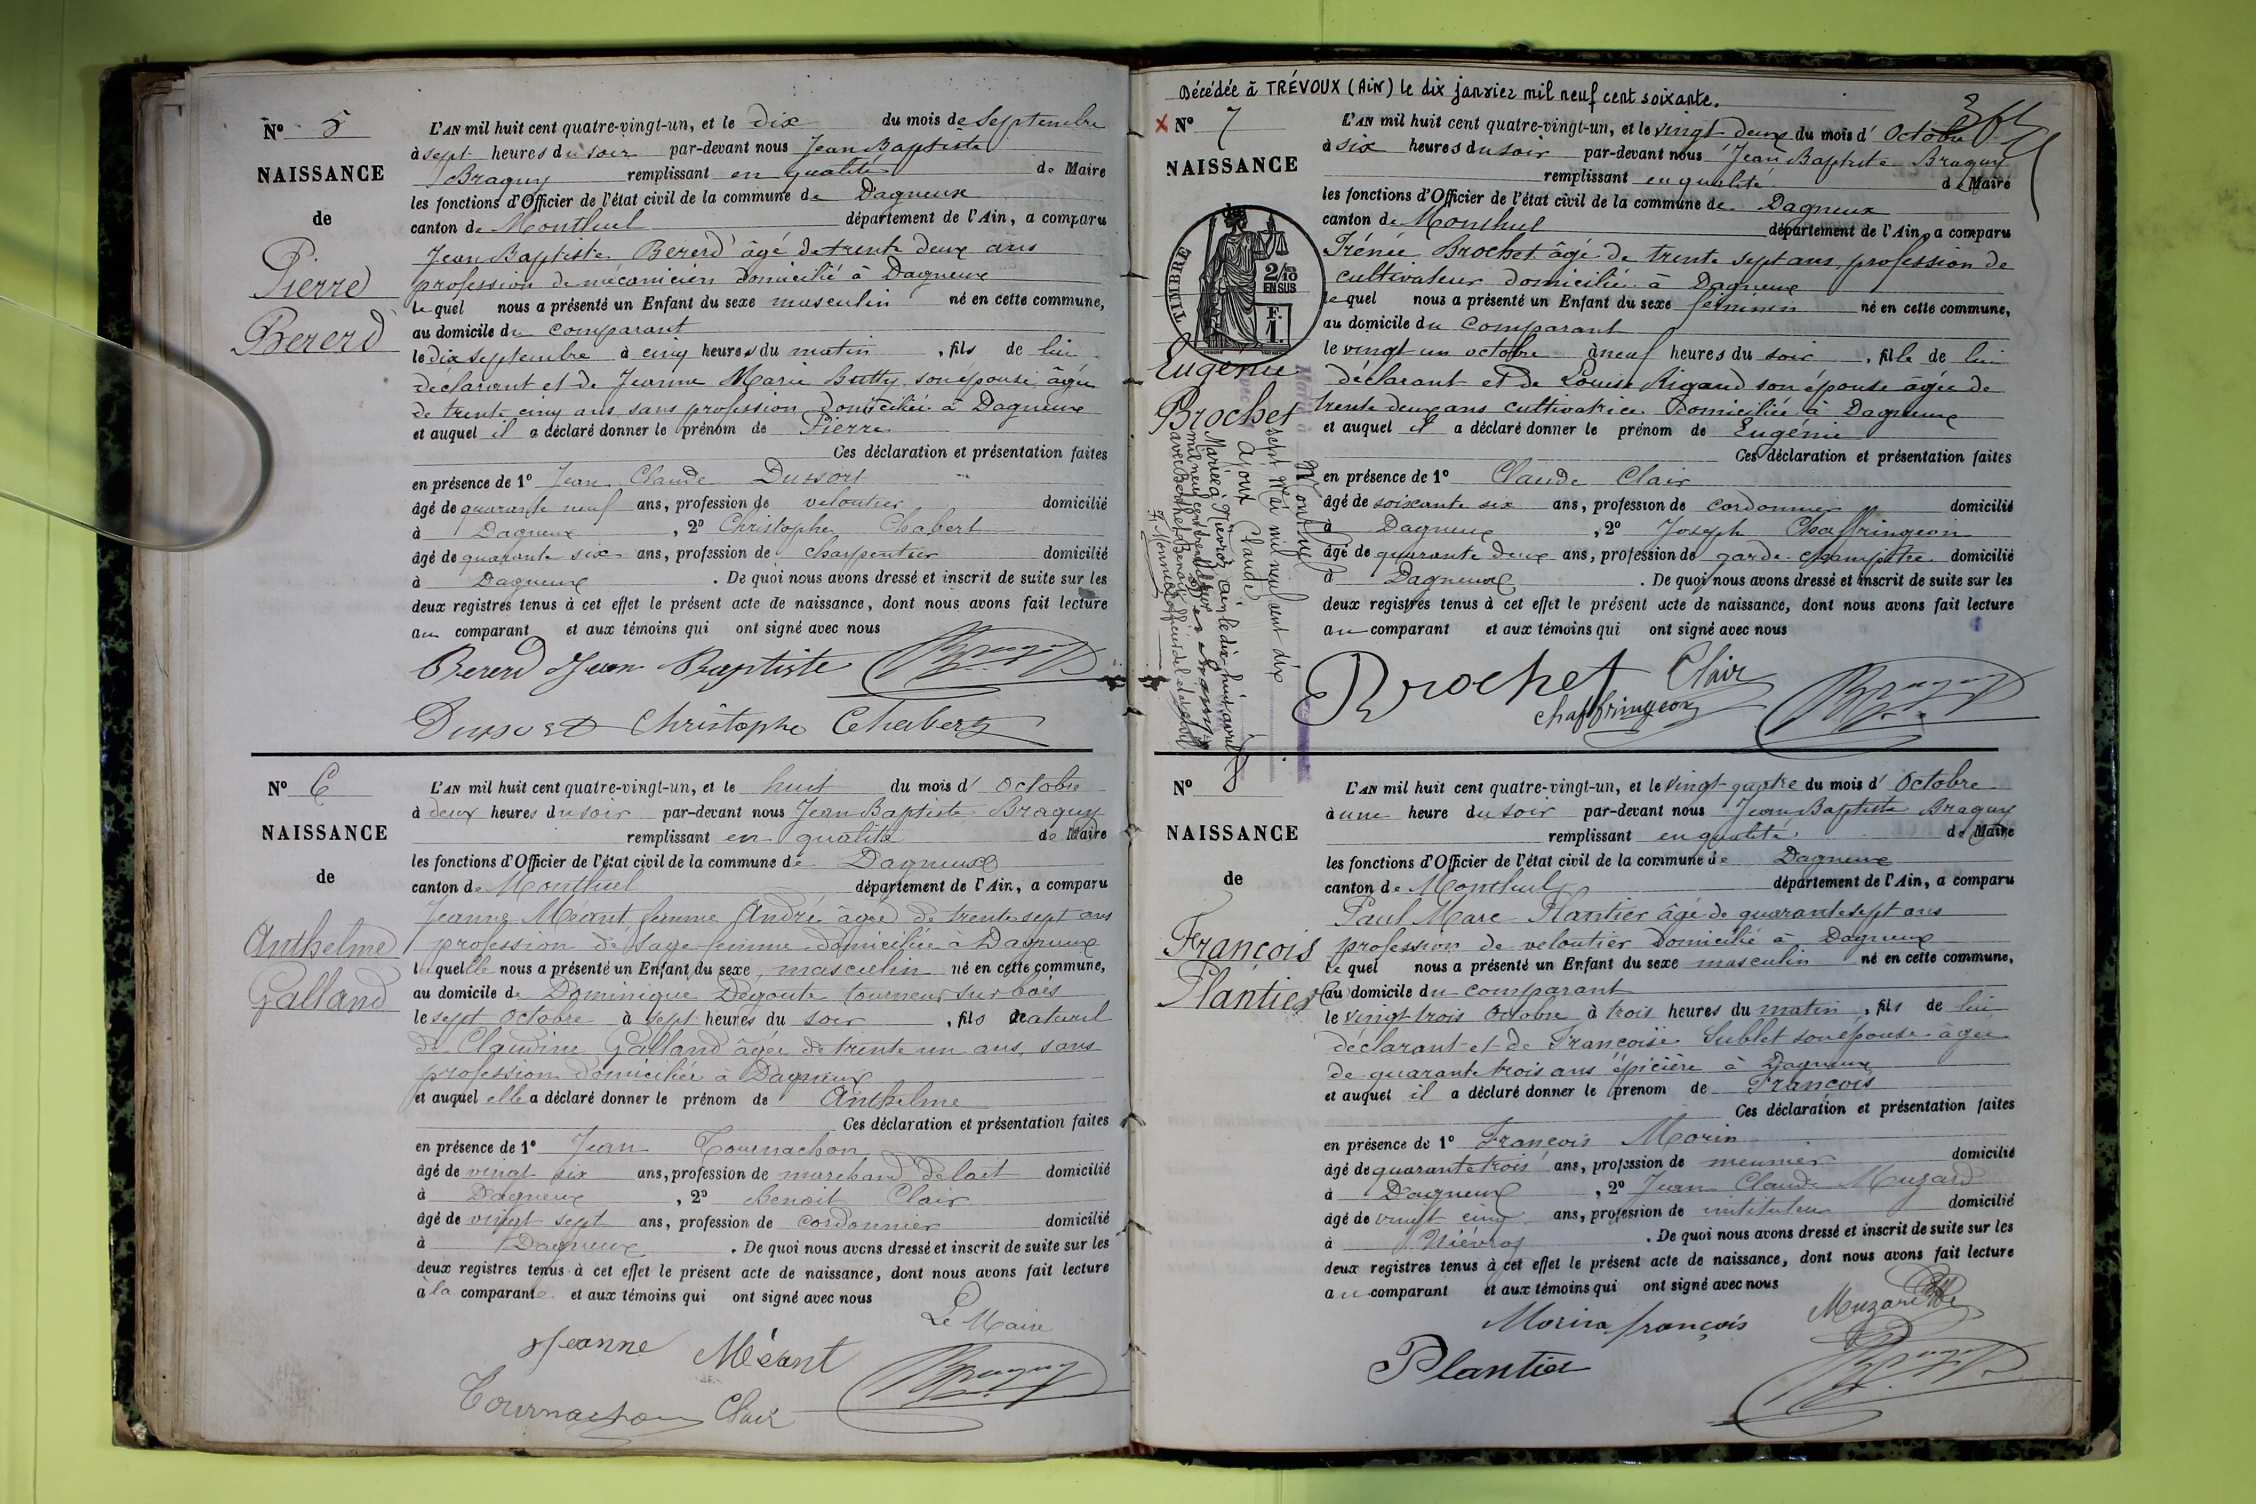 N° 5
NAISSANCE
de
Pierre
Bererd
L'AN mil huit cent quatre-vingt-un, et le dix du mois de Septembre
à sept heures du soir par-devant nous Jean Baptiste
Braguy remplissant en qualité de Maire
les fonctions d'Officier de l'état civil de la commune de Dagneux
canton de Montluel département de l'Ain, a comparu
Jean Baptiste Bererd âgé de trente deux ans
profession de mécanicien domicilié à Dagneux
lequel nous a présenté un Enfant du sexe masculin né en cette commune,
au domicile du comparant
le dix septembre à cinq heures du matin, fils de lui
déclarant et de Jeanne Marie Buthy son épouse âgée
de trente cinq ans sans profession domiciliée à Dagneux
et auquel il a déclaré donner le prénom de Pierre
Ces déclaration et présentation faites
en présence de 1° Jean Claude Dussort
âgé de quarante neuf ans, profession de veloutier domicilié
à Dagneux, 2° Christophe Chabert
âgé de quarante six ans, profession de charpentier domicilié
à Dagneux. De quoi nous avons dressé et inscrit de suite sur les
deux registres tenus à cet effet le présent acte de naissance, dont nous avons fait lecture
au comparant et aux témoins qui ont signé avec nous
Bererd Jean Baptiste Braguy
Dussort Christophe Chabert
N° 6
NAISSANCE
de
Anthelme
Galland
L'AN mil huit cent quatre-vingt-un, et le huit du mois d'Octobre
à deux heures du soir par-devant nous Jean Baptiste Braguy
remplissant en qualité de Maire
les fonctions d'Officier de l'état civil de la commune de Dagneux
canton de Montluel département de l'Ain, a comparu
Jeanne Méant femme André âgée de trente sept ans
profession de Sage femme domiciliée à Dagneux
laquelle nous a présenté un Enfant du sexe masculin né en cette commune,
au domicile de Dominique Degoute tourneur sur bois
le sept Octobre à sept heures du soir, fils naturel
de Claudine Galland âgée de trente un ans, sans
profession domiciliée à Dagneux
et auquel elle a déclaré donner le prénom de Anthelme
Ces déclaration et présentation faites
en présence de 1° Jean Tournachon
âgé de vingt six ans, profession de marchand de lait domicilié
à Dagneux, 2° Benoit Clair
âgé de vingt sept ans, profession de cordonnier domicilié
à Dagneux. De quoi nous avons dressé et inscrit de suite sur les
deux registres tenus à cet effet le présent acte de naissance, dont nous avons fait lecture
à la comparante et aux témoins qui ont signé avec nous
Le Maire
Jeanne Méant Braguy
Tournachon Clair
Décédée à TRÉVOUX (AiN) le dix janvier mil neuf cent soixante.
x N° 7
NAISSANCE
de
TIMBRE
2/10 EN SUS
F. 1.
Eugénie
Brochet
Mariée à
Montluel
sept Mai mil neuf cent dix
avec
Ajoux Claude
Mariée à Niévroz Ain le dix-huit avril
L'AN mil huit cent quatre-vingt-un, et le vingt deux du mois d'Octobre
à six heures du soir par-devant nous Jean Baptiste Braguy
remplissant en qualité de Maire
les fonctions d'Officier de l'état civil de la commune de Dagneux
canton de Montluel département de l'Ain, a comparu
Irénée Brochet âgé de trente sept ans profession de
cultivateur domicilié à Dagneux
lequel nous a présenté un Enfant du sexe féminin né en cette commune,
au domicile du comparant
le vingt un octobre à neuf heures du soir, fille de lui
déclarant et de Louise Rigaud son épouse âgée de
trente deux ans cultivatrice domiciliée à Dagneux
et auquel il a déclaré donner le prénom de Eugénie
Ces déclaration et présentation faites
en présence de 1° Claude Clair
âgé de soixante six ans, profession de cordonnier domicilié
à Dagneux, 2° Joseph Chaffringeon
âgé de quarante deux ans, profession de garde-champêtre domicilié
à Dagneux. De quoi nous avons dressé et inscrit de suite sur les
deux registres tenus à cet effet le présent acte de naissance, dont nous avons fait lecture
au comparant et aux témoins qui ont signé avec nous
Brochet Clair
Chaffringeon Braguy
N° 8
NAISSANCE
de
François
Plantier
L'AN mil huit cent quatre-vingt-un, et le vingt quatre du mois d'Octobre
à une heure du soir par-devant nous Jean Baptiste Braguy
remplissant en qualité de Maire
les fonctions d'Officier de l'état civil de la commune de Dagneux
canton de Montluel département de l'Ain, a comparu
Paul Marc Plantier âgé de quarante sept ans
profession de veloutier domicilié à Dagneux
lequel nous a présenté un Enfant du sexe masculin né en cette commune,
au domicile du comparant
le vingt trois Octobre à trois heures du matin, fils de lui
déclarant et de Françoise Sublet son épouse âgée
de quarante trois ans épicière à Dagneux
et auquel il a déclaré donner le prénom de François
Ces déclaration et présentation faites
en présence de 1° François Morin
âgé de quarante trois ans, profession de meunier domicilié
à Dagneux, 2° Jean Claude Muzard
âgé de vingt cinq ans, profession de instituteur domicilié
à Niévroz. De quoi nous avons dressé et inscrit de suite sur les
deux registres tenus à cet effet le présent acte de naissance, dont nous avons fait lecture
au comparant et aux témoins qui ont signé avec nous
Morin françois Muzard
Plantier Braguy